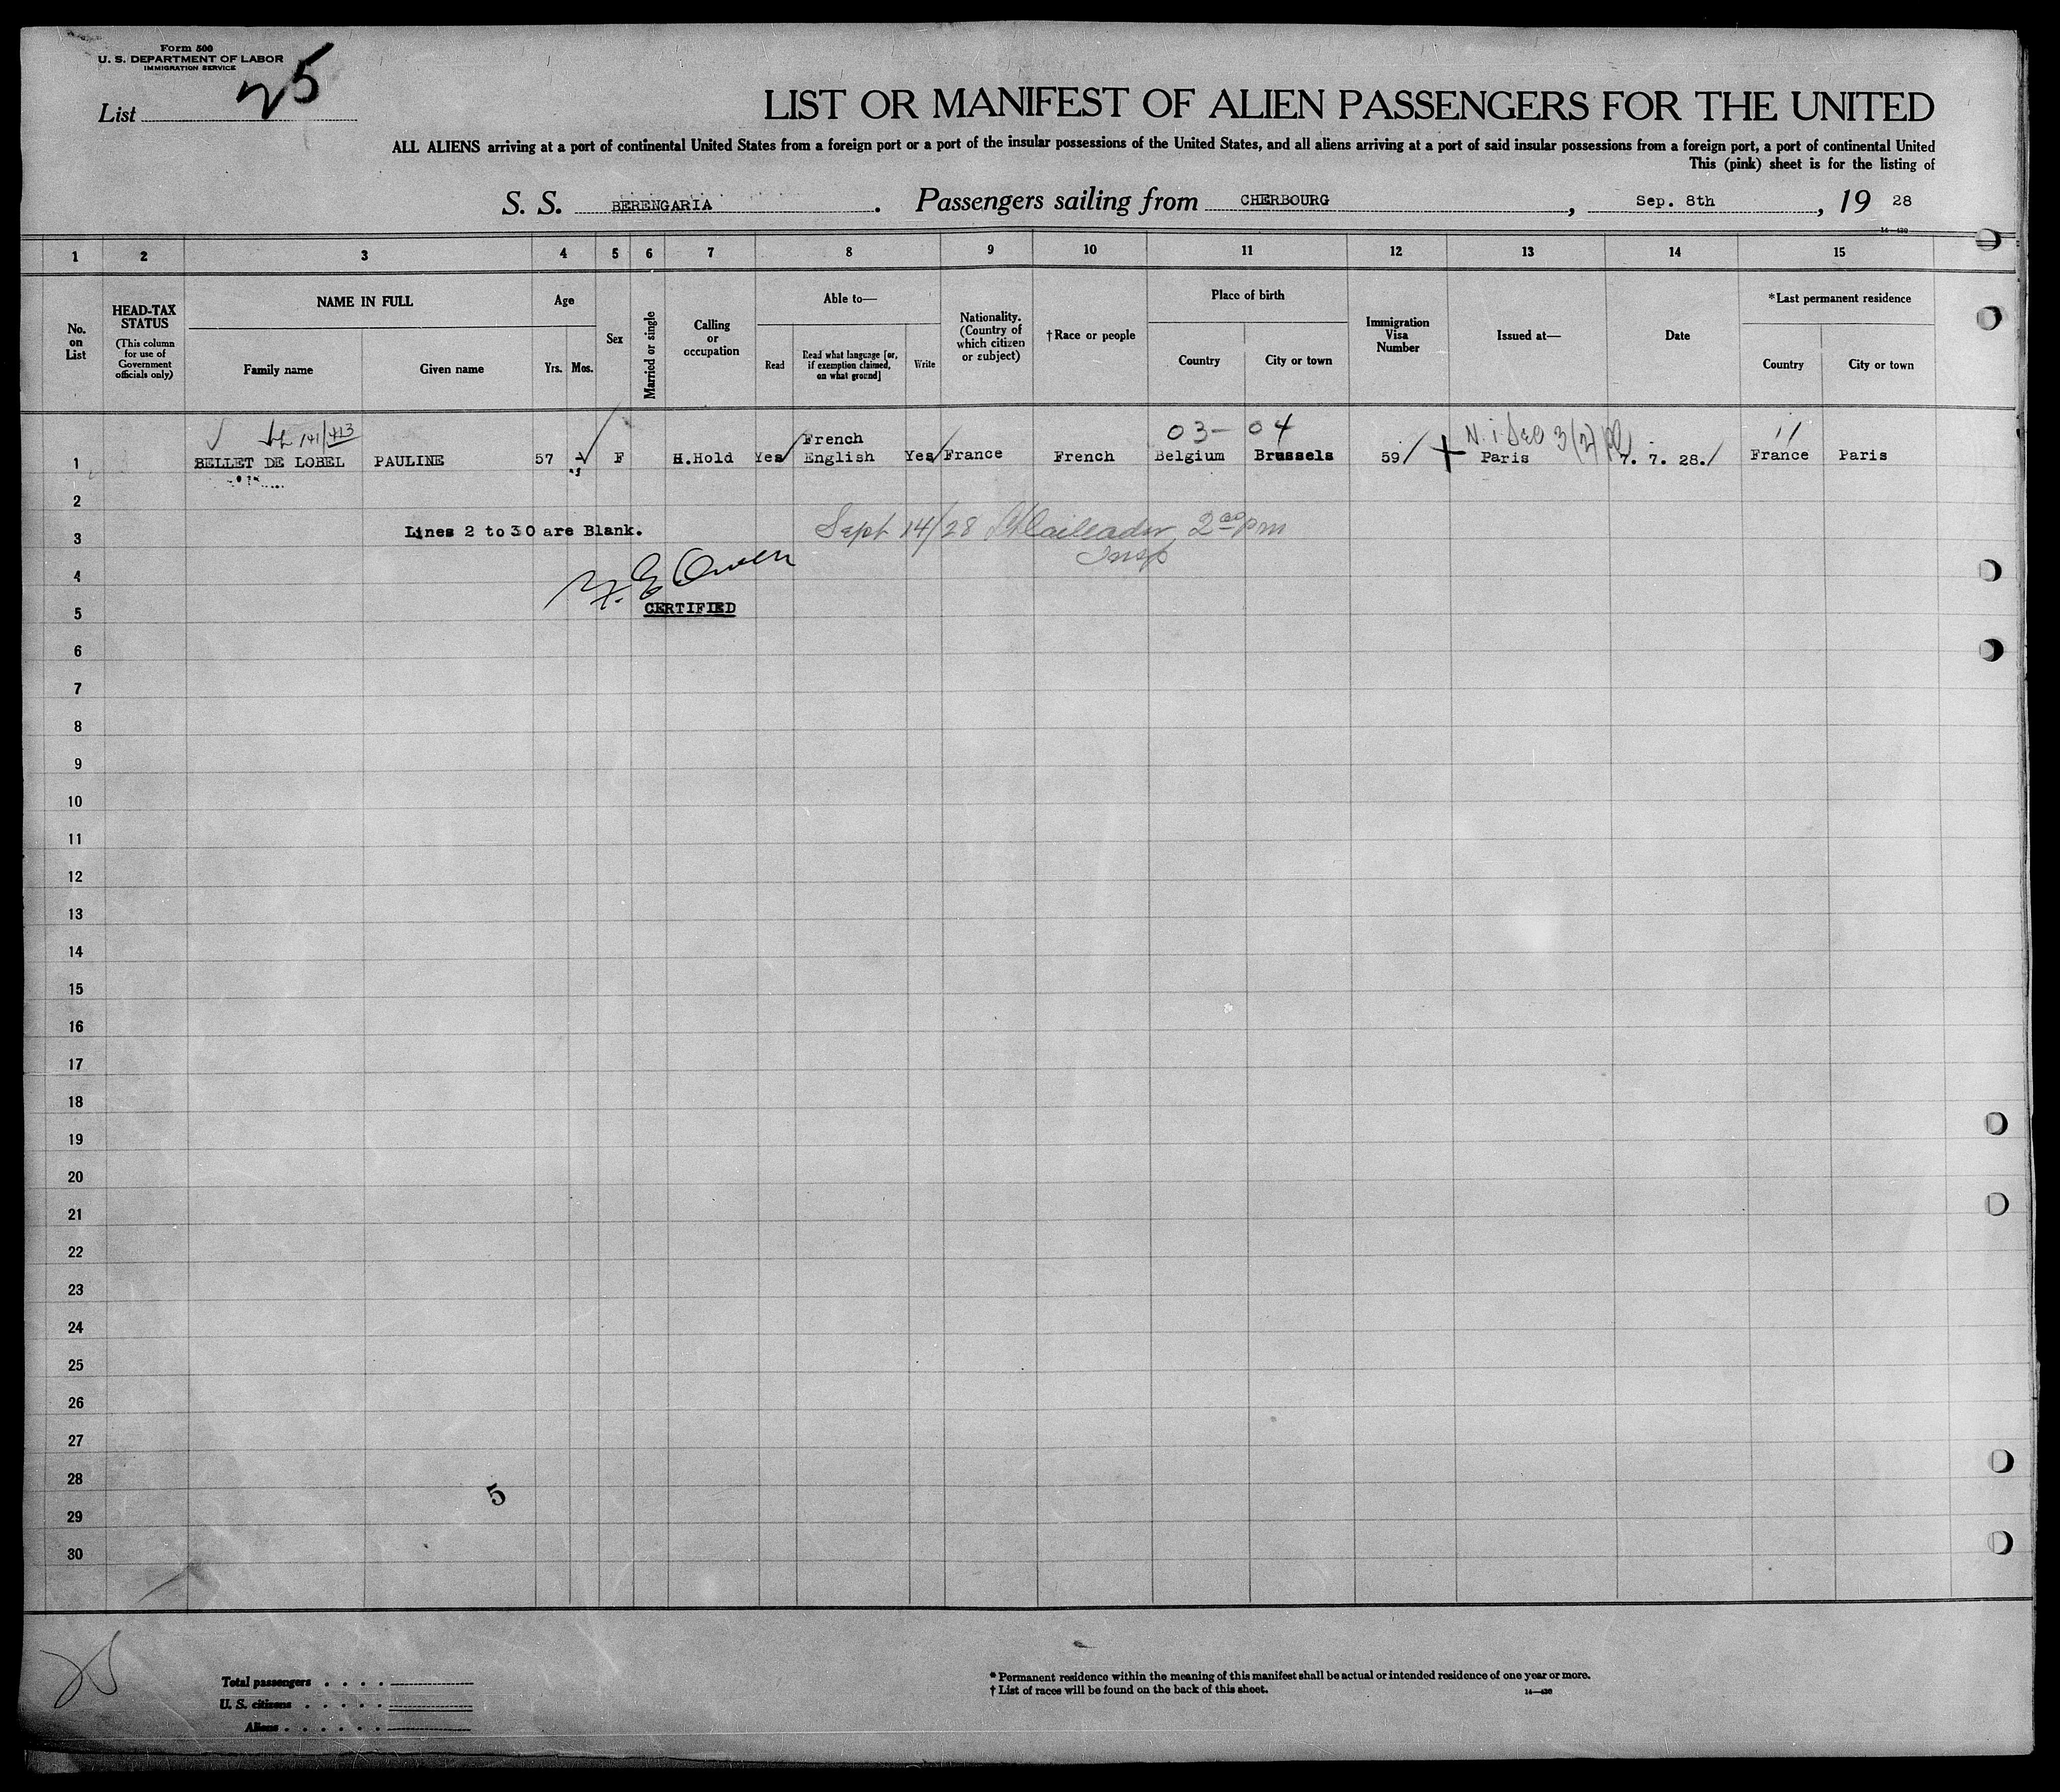 Form 500
U. S. DEPARTMENT OF LABOR
IMMIGRATION SERVICE
List 25
LIST OR MANIFEST OF ALIEN PASSENGERS FOR THE UNITED
ALL ALIENS arriving at a port of continental United States from a foreign port or a port of the insular possessions of the United States, and all aliens arriving at a port of said insular possessions from a foreign port, a port of continental United
This (pink) sheet is for the listing of
S. S. BERENGARIA. Passengers sailing from CHERBOURG, Sep. 8th, 19 28
14-430
1 2 3 4 5 6 7 8 9 10 11 12 13 14 15
No. on List
HEAD-TAX STATUS
(This column for use of Government officials only)
NAME IN FULL
Family name Given name
Age
Yrs. Mos.
Sex
Married or single
Calling or occupation
Able to—
Read
Read what language [or, if exemption claimed, on what ground]
Write
Nationality. (Country of which citizen or subject)
†Race or people
Place of birth
Country City or town
Immigration Visa Number
Issued at—
Date
*Last permanent residence
Country City or town
141/413 03- 04 3(2)
1 BELLET DE LOBEL PAULINE 57 F H.Hold Yes French English Yes France French Belgium Brussels 59 Paris 7. 7. 28. France Paris
2
3 Lines 2 to 30 are Blank. Sept 14/28 2 00 pm
Insp
4 Owen
5 CERTIFIED
6
7
8
9
10
11
12
13
14
15
16
17
18
19
20
21
22
23
24
25
26
27
28
5
29
30
25
Total passengers . . . .
U. S. citizens . . . . .
Aliens . . . . . .
* Permanent residence within the meaning of this manifest shall be actual or intended residence of one year or more.
† List of races will be found on the back of this sheet. 14-430